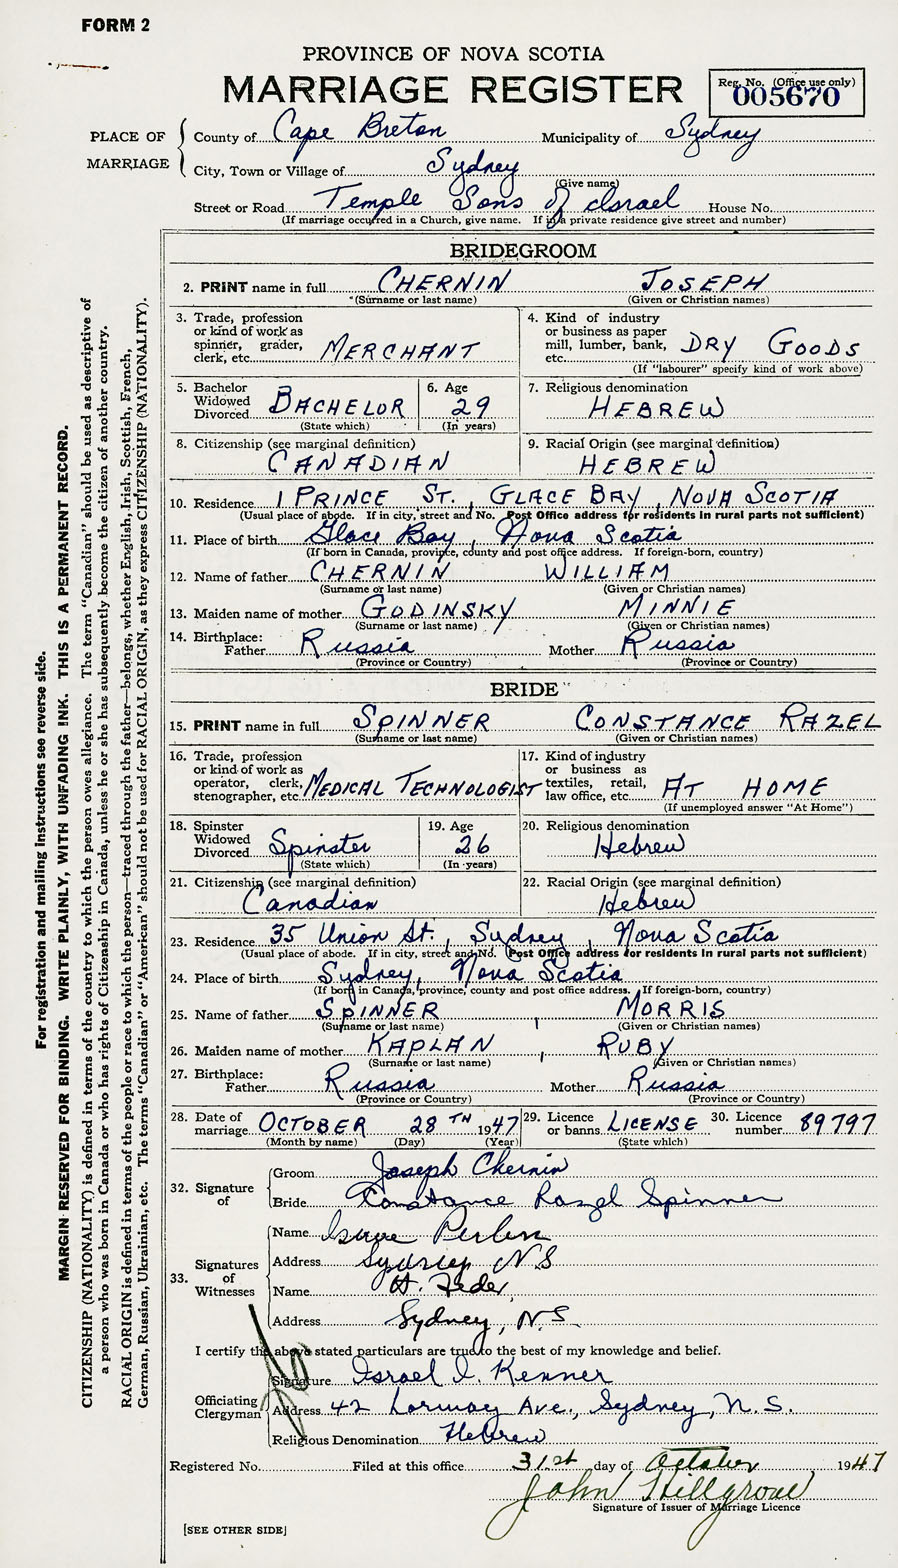 FORM 2
PROVINCE OF NOVA SCOTIA
MARRIAGE REGISTER
Reg. No. (Office use only)
005670
PLACE OF MARRIAGE
County of Cape Breton Municipality of Sydney
City, Town or Village of Sydney
(Give name)
Street or Road Temple Sons of Israel House No.
(If marriage occurred in a Church, give name. If in a private residence give street and number)
BRIDEGROOM
2. PRINT name in full CHERNIN JOSEPH
(Surname or last name) (Given or Christian names)
3. Trade, profession or kind of work as spinner, grader, clerk, etc. MERCHANT
4. Kind of industry or business as paper mill, lumber, bank, etc. DRY GOODS
(If "labourer" specify kind of work above)
5. Bachelor Widowed Divorced BACHELOR
(State which)
6. Age 29
(In years)
7. Religious denomination
HEBREW
8. Citizenship (see marginal definition)
CANADIAN
9. Racial Origin (see marginal definition)
HEBREW
10. Residence 1 PRINCE ST., GLACE BAY, NOVA SCOTIA
(Usual place of abode. If in city, street and No. Post Office address for residents in rural parts not sufficient)
11. Place of birth Glace Bay, Nova Scotia
(If born in Canada, province, county and post office address. If foreign-born, country)
12. Name of father CHERNIN WILLIAM
(Surname or last name) (Given or Christian names)
13. Maiden name of mother GODINSKY MINNIE
(Surname or last name) (Given or Christian names)
14. Birthplace:
Father Russia Mother Russia
(Province or Country) (Province or Country)
BRIDE
15. PRINT name in full SPINNER CONSTANCE RAZEL
(Surname or last name) (Given or Christian names)
16. Trade, profession or kind of work as operator, clerk, stenographer, etc. MEDICAL TECHNOLOGIST
17. Kind of industry or business as textiles, retail, law office, etc. AT HOME
(If unemployed answer "At Home")
18. Spinster Widowed Divorced Spinster
(State which)
19. Age 26
(In years)
20. Religious denomination
Hebrew
21. Citizenship (see marginal definition)
Canadian
22. Racial Origin (see marginal definition)
Hebrew
23. Residence 35 Union St., Sydney, Nova Scotia
(Usual place of abode. If in city, street and No. Post Office address for residents in rural parts not sufficient)
24. Place of birth Sydney, Nova Scotia
(If born in Canada, province, county and post office address. If foreign-born, country)
25. Name of father SPINNER, MORRIS
(Surname or last name) (Given or Christian names)
26. Maiden name of mother KAPLAN, RUBY
(Surname or last name) (Given or Christian names)
27. Birthplace:
Father Russia Mother Russia
(Province or Country) (Province or Country)
28. Date of marriage OCTOBER 28TH 1947
(Month by name) (Day) (Year)
29. Licence or banns LICENSE
(State which)
30. Licence number 89797
32. Signature of
Groom Joseph Chernin
Bride Constance Razel Spinner
33. Signatures of Witnesses
Name Isaac Perlin
Address Sydney N.S.
Name H. Feder
Address Sydney, N.S.
I certify the above stated particulars are true to the best of my knowledge and belief.
Officiating Clergyman
Signature Israel I. Kenner
Address 42 Lorway Ave., Sydney, N.S.
Religious Denomination Hebrew
Registered No. Filed at this office 31st day of October 1947
John Hillgrove
Signature of Issuer of Marriage Licence
[SEE OTHER SIDE]
For registration and mailing instructions see reverse side.
MARGIN RESERVED FOR BINDING. WRITE PLAINLY, WITH UNFADING INK. THIS IS A PERMANENT RECORD.
CITIZENSHIP (NATIONALITY) is defined in terms of the country to which the person owes allegiance. The term "Canadian" should be used as descriptive of
a person who was born in Canada or who has rights of Citizenship in Canada, unless he or she has subsequently become the citizen of another country.
RACIAL ORIGIN is defined in terms of the people or race to which the person—traced through the father—belongs, whether English, Irish, Scottish, French,
German, Russian, Ukrainian, etc. The terms "Canadian" or "American" should not be used for RACIAL ORIGIN, as they express CITIZENSHIP (NATIONALITY).